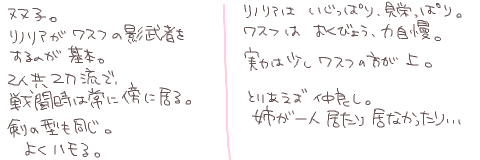 双子。
リノリアがワスフの影武者を
するのが基本。
2人共2刀流で、
戦闘時は常に傍に居る。
剣の型も同じ。
よくハモる。
リノリアは いじっぱり、見栄っぱり。
ワスフは おくびょう、力自慢。
実力は少しワスフの方が上。
とりあえず仲良し。
姉が一人居たり居なかったり…